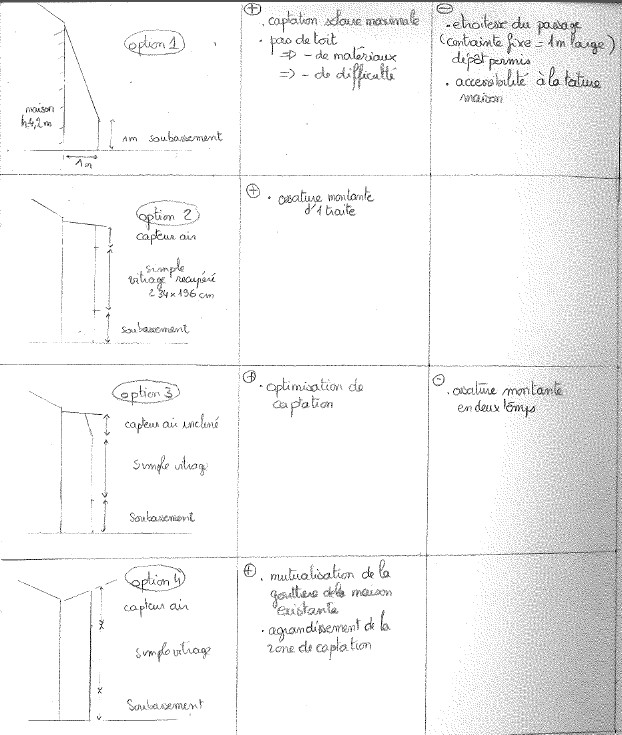 option 1
maison
h 4,2m
1m soubassement
1m
+
. captation solaire maximale
. pas de toit
=> - de matériaux
=> - de difficulté
-
. etroitesse du passage
(containte fixe = 1m large)
dépôt permis
. accessibilité à la toiture
maison
option 2
capteur air
simple
vitrage recupéré
234 x 196 cm
soubassement
+
. ossature montante
d'1 traite
option 3
capteur air incliné
simple vitrage
Soubassement
+
. optimisation de
captation
-
. ossature montante
en deux temps
option 4
capteur air
simple vitrage
Soubassement
+
. mutualisation de la
gouttiere de la maison
existante
. agrandissement de la
zone de captation